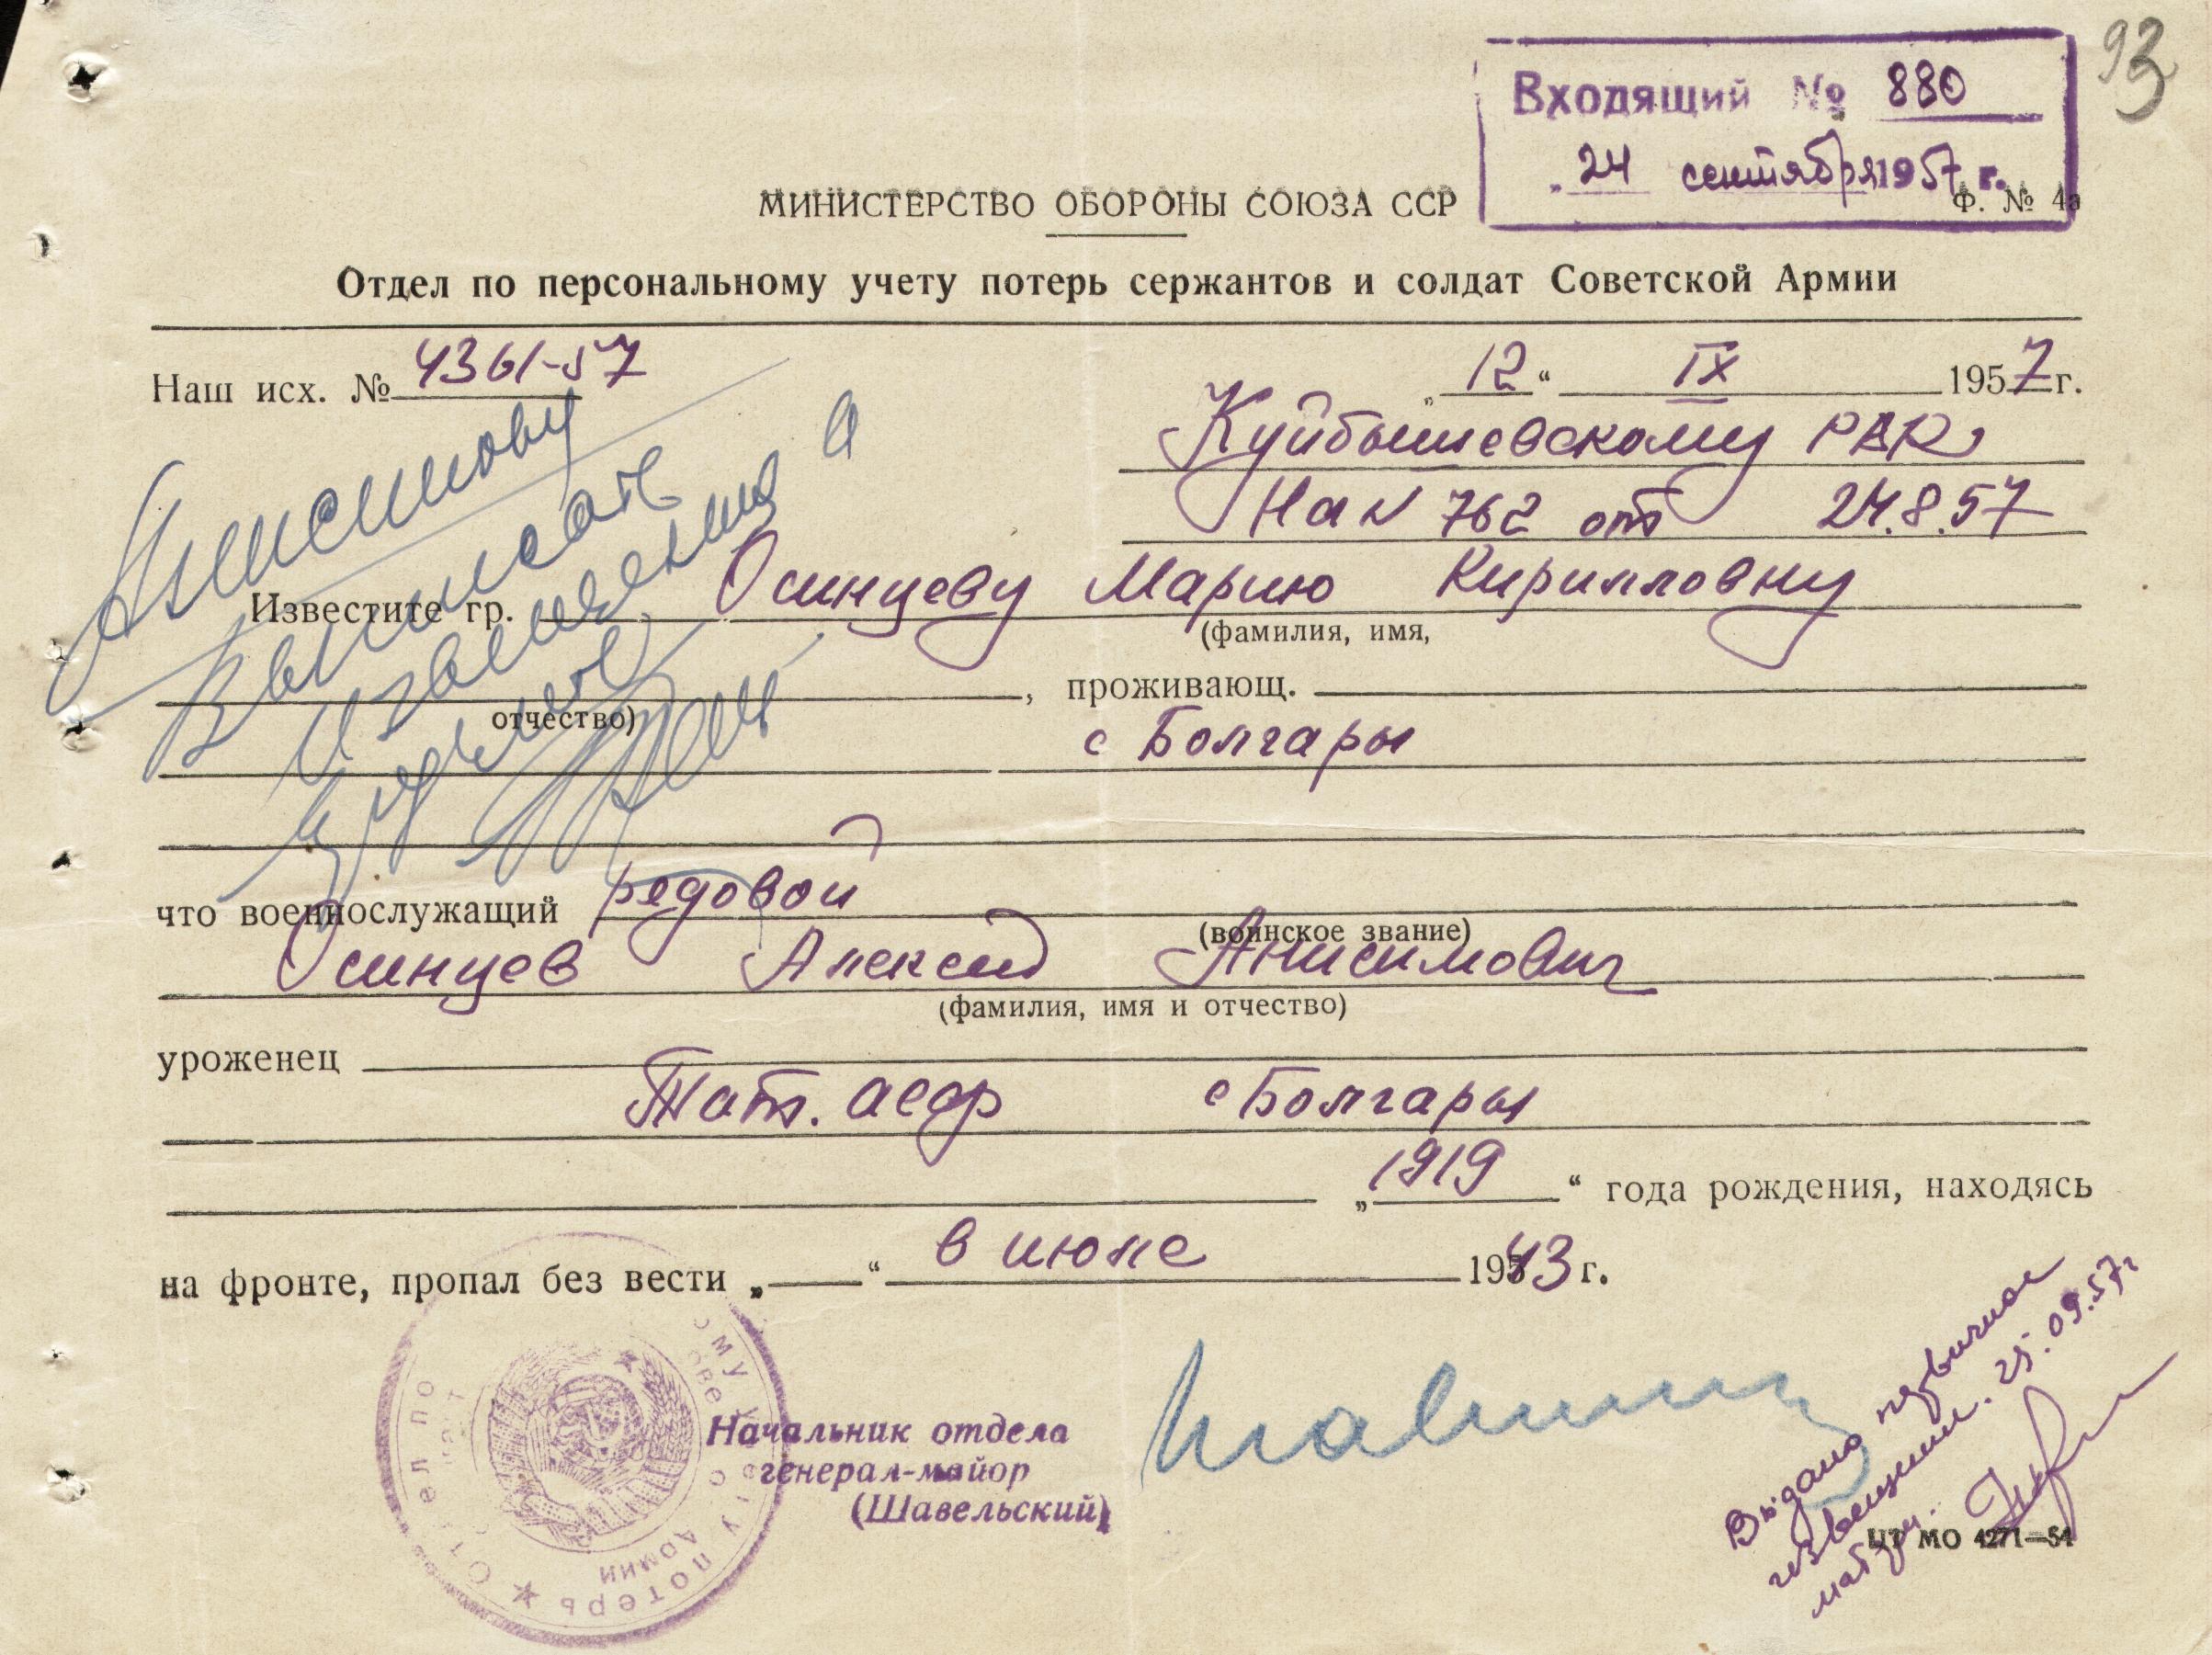 93
Входящий № 880
„ 24 сентября 1957 г.
МИНИСТЕРСТВО ОБОРОНЫ СОЮЗА ССР
Ф. № 4а
Отдел по персональному учету потерь сержантов и солдат Советской Армии
Наш исх. № 4361-57
„ 12 “ IX 1957 г.
Куйбышевскому РВК
На № 762 от 24.8.57
Выписать
извещения
Известите гр. Осинцеву Марию Кирилловну
(фамилия, имя,
, проживающ.
отчество)
с Болгары
что военнослужащий рядовой
(воинское звание)
Осинцев Алексей Анисимович
(фамилия, имя и отчество)
уроженец
Тат. АССР с Болгары
„ 1919 “ года рождения, находясь
на фронте, пропал без вести „ “ в июле 1943 г.
Отдел по
ому учету потерь
Армии
Начальник отдела
генерал-майор
(Шавельский)
Выдано
извещение. 25.09.57г
ЦТ МО 4271—54